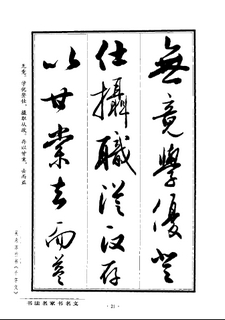 無竟學優登
仕攝職從政存
以甘棠去而益
无竟。学优登仕。摄职从政。存以甘棠。去而益
书法名家书名文
· 21 ·